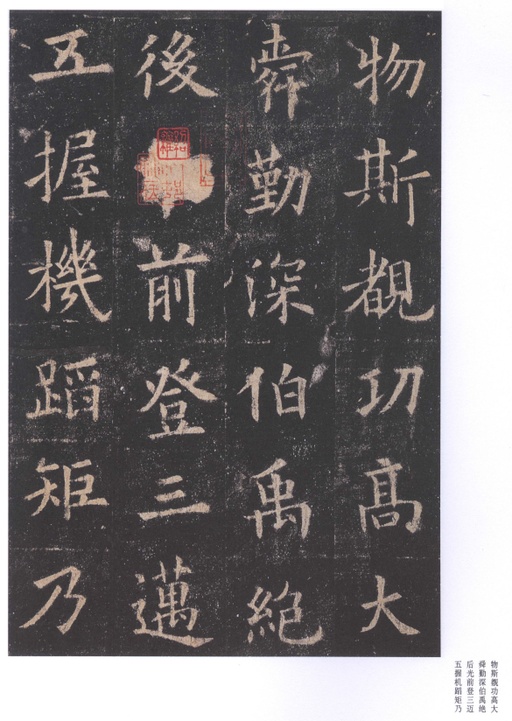 物斯覩功髙大
舜勤深伯禹絶
後前登三邁
五握機蹈矩乃
物斯覩功高大
舜勤深伯禹绝
后光前登三迈
五握机蹈矩乃